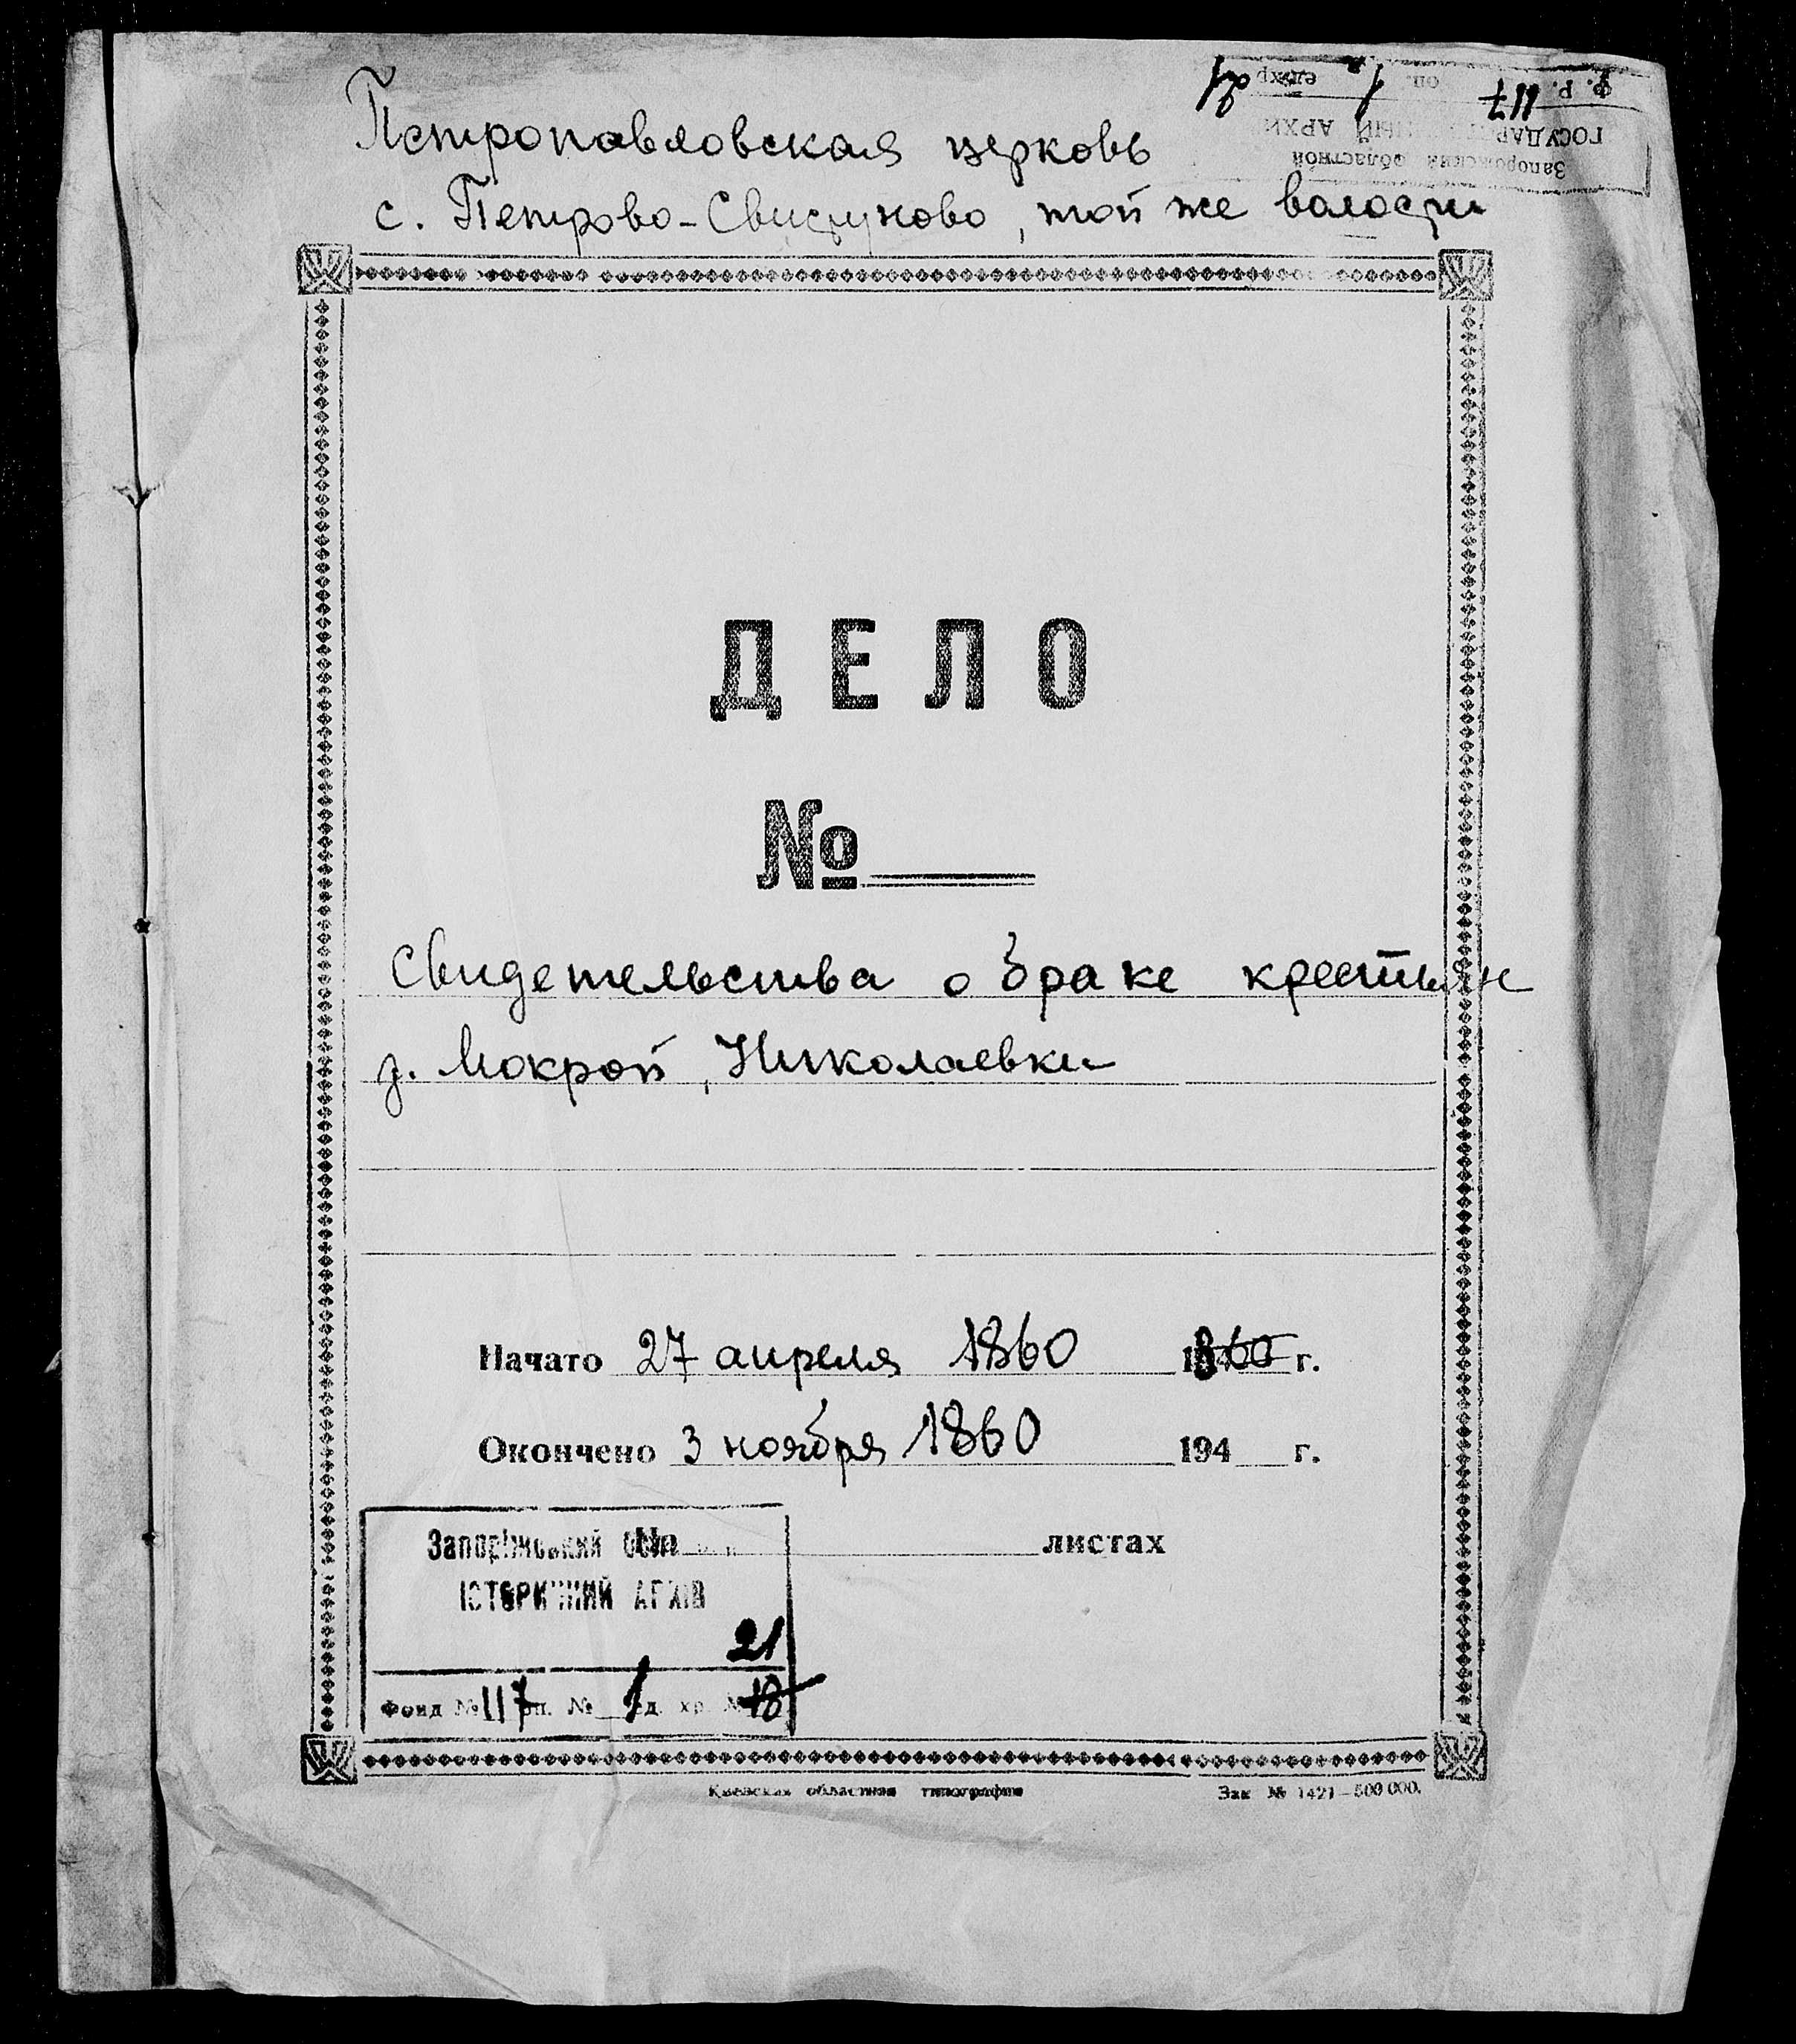 Ф. Р. 117 оп. 1 ед хр 21
Запорожский областной
Петропавловская церковь
с. Петрово-Свистуново, той же волости
ДЕЛО
№
Свидетельства о браке крестьян
д. Мокрой, Николаевки
Начато 27 апреля 1860 1860 г.
Окончено 3 ноября 1860 194 г.
На листах
Запоріжський обл.
ІСТОРИЧНИЙ АРХІВ
21
Фонд № 117 оп. № 1 од. хр. № 18
Киевская областная типография Зак № 1421—500 000.